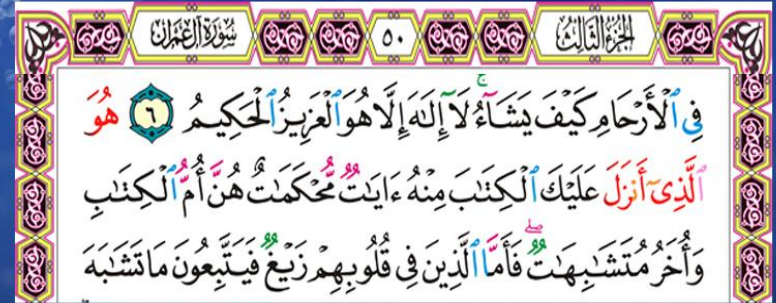 سُورَةُ آلِ عِمْرَانَ ٥٠ الجُزْءُ الثَّالِثُ
فِي ٱلْأَرْحَامِ كَيْفَ يَشَآءُ ۚ لَآ إِلَـٰهَ إِلَّا هُوَ ٱلْعَزِيزُ ٱلْحَكِيمُ ٦ هُوَ
ٱلَّذِىٓ أَنزَلَ عَلَيْكَ ٱلْكِتَـٰبَ مِنْهُ ءَايَـٰتٌ مُّحْكَمَـٰتٌ هُنَّ أُمُّ ٱلْكِتَـٰبِ
وَأُخَرُ مُتَشَـٰبِهَـٰتٌ ۖ فَأَمَّا ٱلَّذِينَ فِى قُلُوبِهِمْ زَيْغٌ فَيَتَّبِعُونَ مَا تَشَـٰبَهَ